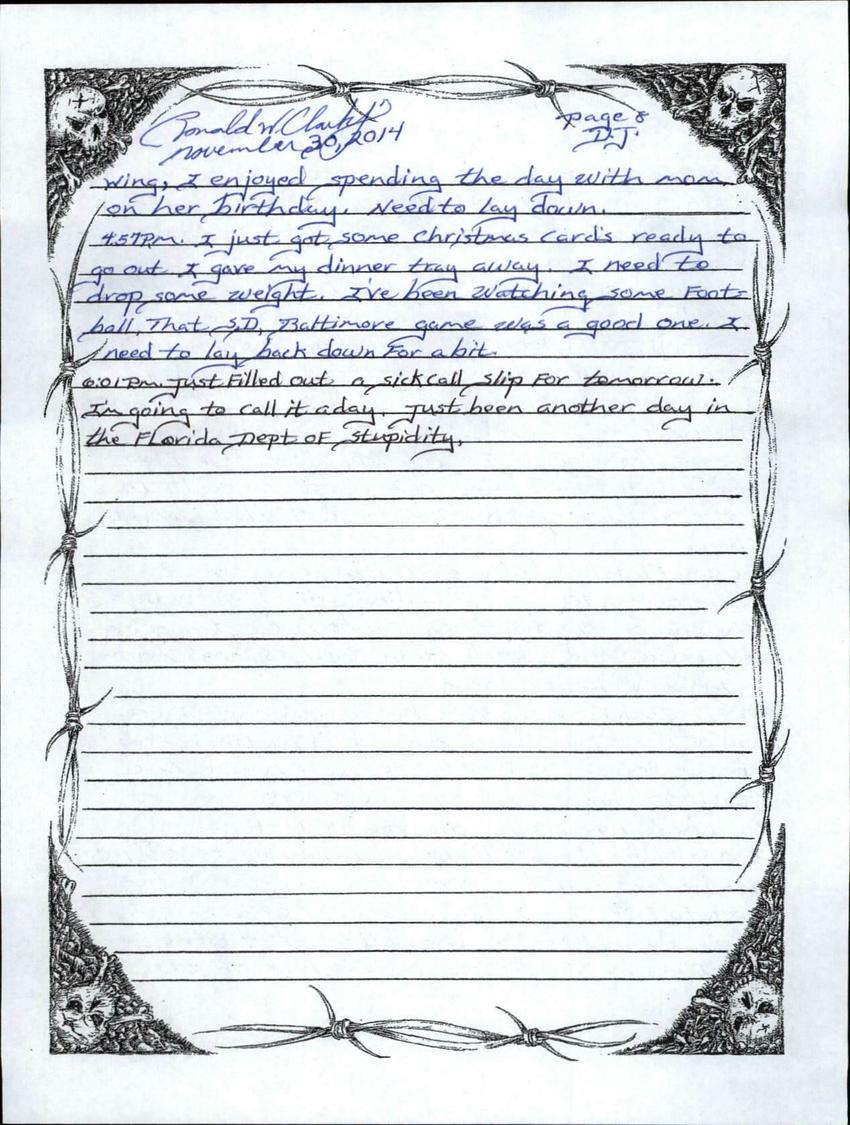 Ronald W. Clark Jr
page 8
November 30, 2014
D.J.
wing, I enjoyed spending the day with mom
on her birthday. Need to lay down.
4:57PM. I just got some Christmas Cards ready to
go out. I gave my dinner tray away. I need to
drop some weight. I've been watching some Foot=
ball, That S.D, Baltimore game was a good one. I
need to lay back down For a bit.
6:01 P.M. Just Filled out a sickcall slip For tomorrow.
I'm going to call it a day. Just been another day in
the Florida Dept of stupidity.